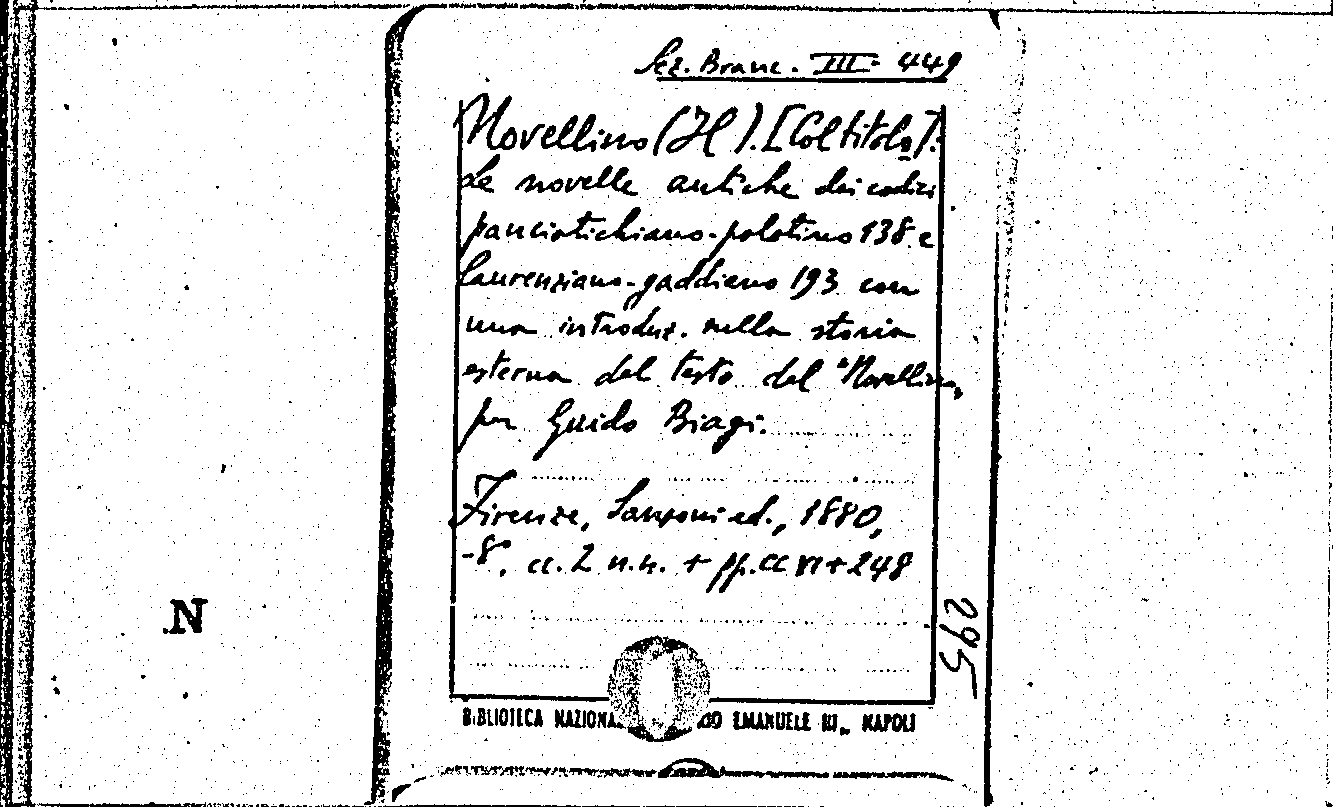 Sez. Branc. III. 449
Novellino (Il). [Col titolo]:
Le novelle antiche dei codici
panciatichiano-palatino 138 e
laurenziano-gaddiano 193 con
una introduz. sulla storia
esterna del testo del "Novellino"
per Guido Biagi.
Firenze, Sansoni ed., 1880,
-8°. cc. 2 n.n. + pp. CCVI + 248
N
295
BIBLIOTECA NAZIONA EMANUELE III„ NAPOLI